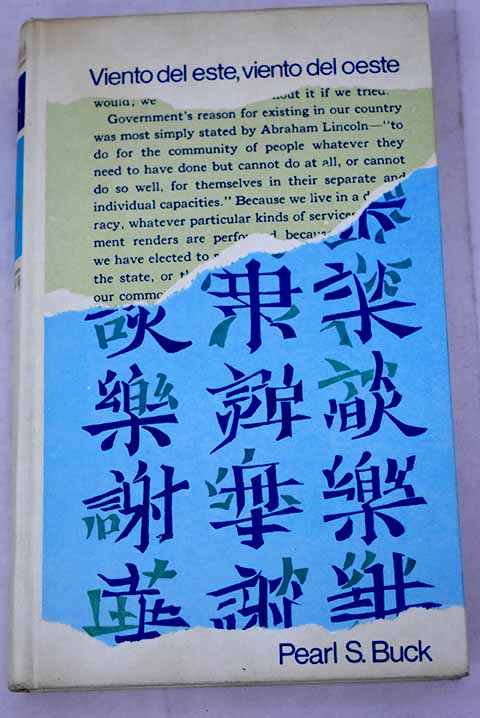 Viento del este, viento del oeste
would, we out it if we tried.
Government's reason for existing in our country
was most simply stated by Abraham Lincoln—"to
do for the community of people whatever they
need to have done but cannot do at all, or cannot
do so well, for themselves in their separate and
individual capacities." Because we live in a
racy, whatever particular kinds of service
ment renders are
we have elected to
the state, or
our
談
樂
謝 樂
華 談
Pearl S. Buck